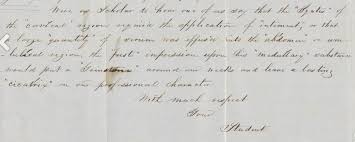 Were my Scholar to hear one of us say that the "Styles" of
the "cervical" region required the application of "ointment", or that
a large "quantity" of "serum was effused into the "abdomen or um-
bilical region, the "first" impression upon this "medullary" substance
would put a "Femoral" around our necks and leave a lasting
"cicatrix" on our professional character
With much respect
Your
Student